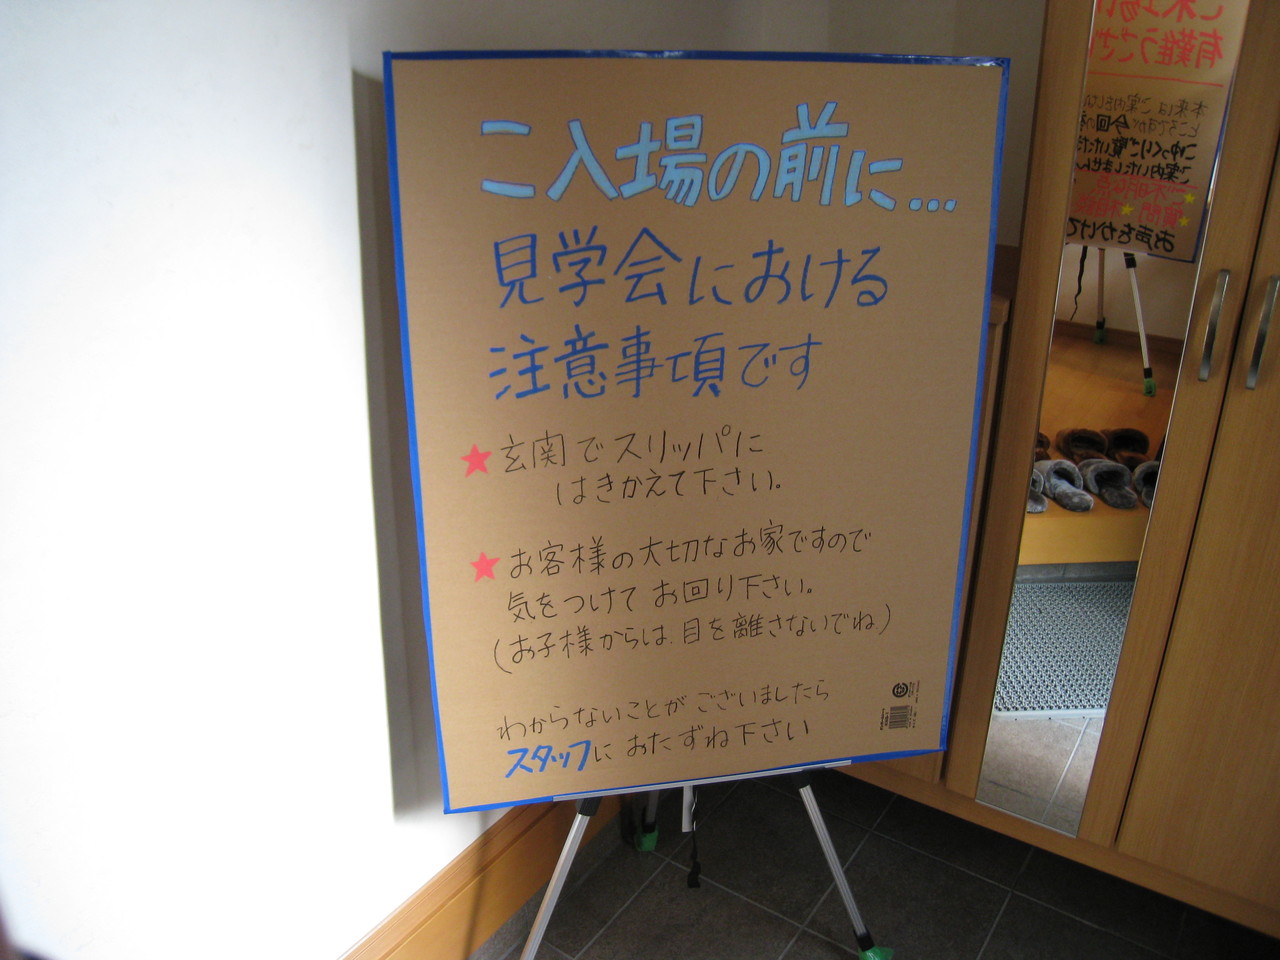 ご入場の前に...
見学会における
注意事項です
★玄関でスリッパに
はきかえて下さい。
★お客様の大切なお家ですので
気をつけてお回り下さい。
(お子様からは、目を離さないでね)
わからないことがございましたら
スタッフにおたずね下さい
有難うござ
お声をかけて